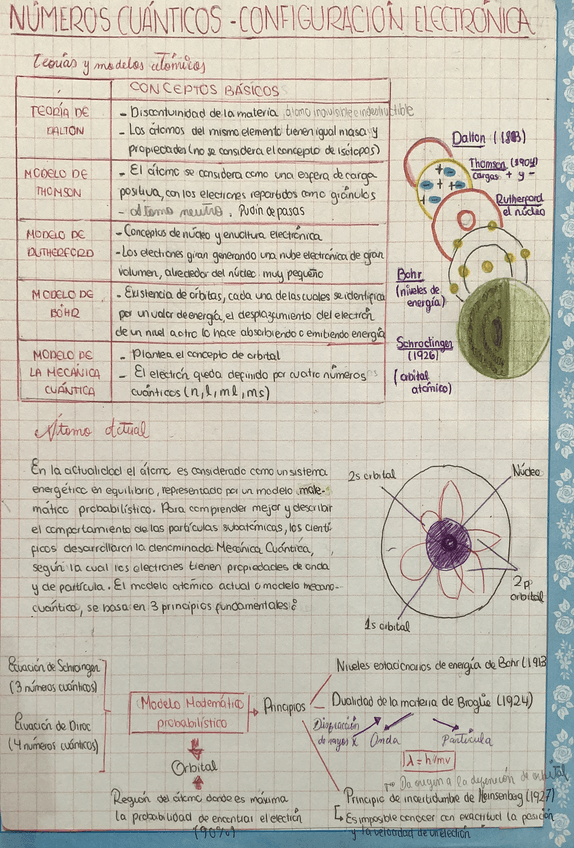 NÚMEROS CUÁNTICOS - CONFIGURACIÓN ELECTRÓNICA
Teorías y modelos atómicos
CONCEPTOS BÁSICOS
TEORÍA DE
DALTON
- Discontuinidad de la materia, átomo indivisible e indestructible
- Los átomos del mismo elemento tienen igual masa y
propiedades (no se considera el concepto de isótopos)
MODELO DE
THOMSON
- El átomo se considera como una esfera de carga
positiva, con los electrones repartidos como gránulos
- átomo neutro. Pudin de pasas
MODELO DE
RUTHERFORD
- Conceptos de núcleo y envoltura electrónica
- Los electrones giran generando una nube electrónica de gran
volumen, alrededor del núcleo muy pequeño
MODELO DE
BÓHR
- Existencia de órbitas, cada una de las cuales se identifica
por un valor de energía, el desplazamiento del electrón
de un nivel a otro lo hace absorbiendo o emitiendo energía
MODELO DE
LA MECÁNICA
CUÁNTICA
- Plantea el concepto de orbital
- El electrón queda definido por cuatro números
cuánticos (n, l, ml, ms)
Dalton (1803)
Thomson (1904)
cargas + y -
Rutherford
el núcleo
Bohr
(niveles de
energía)
Schrodinger
(1926)
(orbital
atómico)
Átomo Actual
En la actualidad el átomo es considerado como un sistema
energético en equilibrio, representado por un modelo mate-
mático probabilístico. Para comprender mejor y describir
el comportamiento de las partículas subatómicas, los cientí
ficos desarrollaron la denominada Mecánica Cuántica,
según la cual los electrones tienen propiedades de onda
y de partícula. El modelo atómico actual o modelo mecano-
cuántico, se basa en 3 principios fundamentales:
2s orbital
Núcleo
2p
orbital
1s orbital
Ecuación de Schronger
(3 números cuánticos)
Ecuación de Dirac
(4 números cuánticos)
Modelo Matemático
probabilístico
Orbital
Región del átomo donde es máxima
la probabilidad de encontrar el electrón
(90%)
Principios
Niveles estacionarios de energía de Bohr (1913
Dualidad de la materia de Broglie (1924)
Difracción
de rayos X
Onda
Partícula
λ = h/mv
Da origen a la definición de orbital
Principio de incertidumbre de Heinsenberg (1927)
Es imposible conocer con exactitud la posición
y la velocidad de un electrón